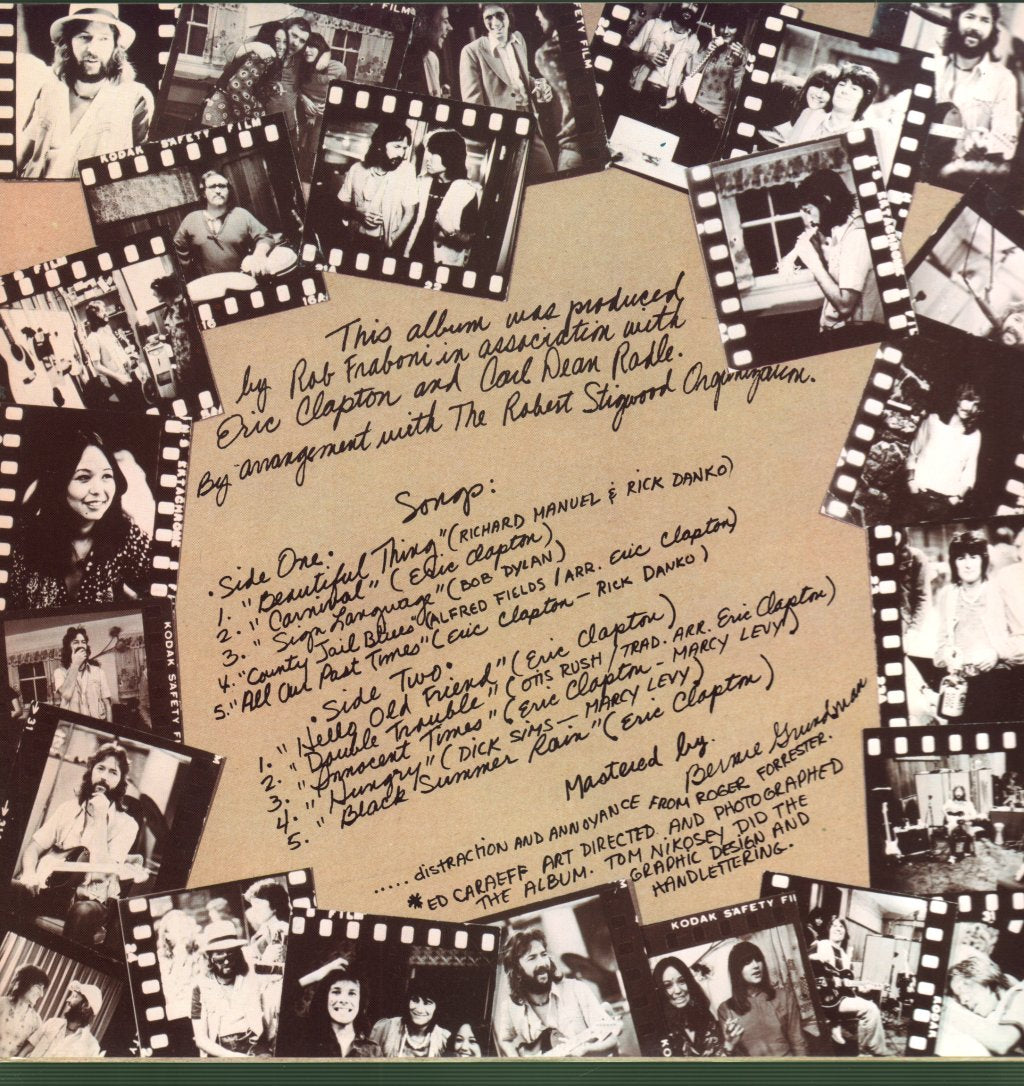 KODAK SAFETY FILM
SAFETY FILM
KODAK SAFETY FILM
16A
16
22
This album was produced
by Rob Fraboni in association with
Eric Clapton and Carl Dean Radle.
By arrangement with The Robert Stigwood Organization.
Songs:
• Side One •
1. "Beautiful Thing" (RICHARD MANUEL & RICK DANKO)
2. "Carnival" (Eric Clapton)
3. "Sign Language" (BOB DYLAN)
4. "County Jail Blues" (ALFRED FIELDS / ARR. Eric Clapton)
5. "All Our Past Times" (Eric Clapton — RICK DANKO)
• Side Two •
1. "Hello Old Friend" (Eric Clapton)
2. "Double Trouble" (OTIS RUSH / TRAD. ARR. Eric Clapton)
3. "Innocent Times" (Eric Clapton - MARCY LEVY)
4. "Hungry" (DICK SIMS — MARCY LEVY)
5. "Black Summer Rain" (Eric Clapton)
Mastered by.
Bernie Grundman
..... DISTRACTION AND ANNOYANCE FROM ROGER FORRESTER.
* ED CARAEFF ART DIRECTED AND PHOTOGRAPHED
THE ALBUM. TOM NIKOSEY DID THE
GRAPHIC DESIGN AND
HANDLETTERING.
KODAK SAFETY
31
KODAK SAFETY FI
KODAK